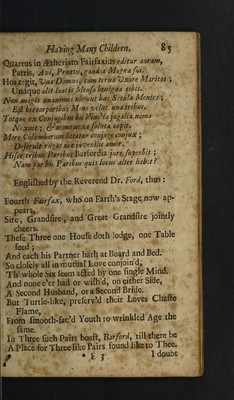 Having Many Children. 85
Quartus in Ætheriam Fairfaxius editur auram,
Patris, Avi, Proavus, gaudia Magna sui.
Hos tegit, Una Domus, cum terna Uxore Maritos;
Unaque alit lautis Mensa benigna cibis.
Non magis unanimes norunt hæc Secula Mentes;
Est his corporibus Mens velut una tribus.
Totque ex Conjugibus his Vincla jugalia nemo
Nexuit, & nemo nexa soluta cupit.
More Columbarum lætatur conjuge conjux;
Deseruit rugas nec juvenilis amor.
His tribus Paribus Barfordia jure superbit;
Nam par his Paribus quis locus alter habet?
Englished by the Reverend Dr. Ford, thus:
Fourth Fairfax, who on Earth's Stage now ap-
pears,
Sire, Grandsire, and Great Grandsire jointly
cheers.
These Three one House doth lodge, one Table
feed;
And each his Partner hath at Board and Bed.
So closely all in mutual Love conjoin'd,
Th' whole Six seem acted by one single Mind.
And none e'er had or wish'd, on either Side,
A Second Husband, or a Second Bride.
But Turtle-like, preserv'd their Loves Chaste
Flame,
From smooth-fac'd Youth to wrinkled Age the
same.
In Three such Pairs boast, Barford, till there be
A Place for Three like Pairs found like to Thee.
E 3 I doubt